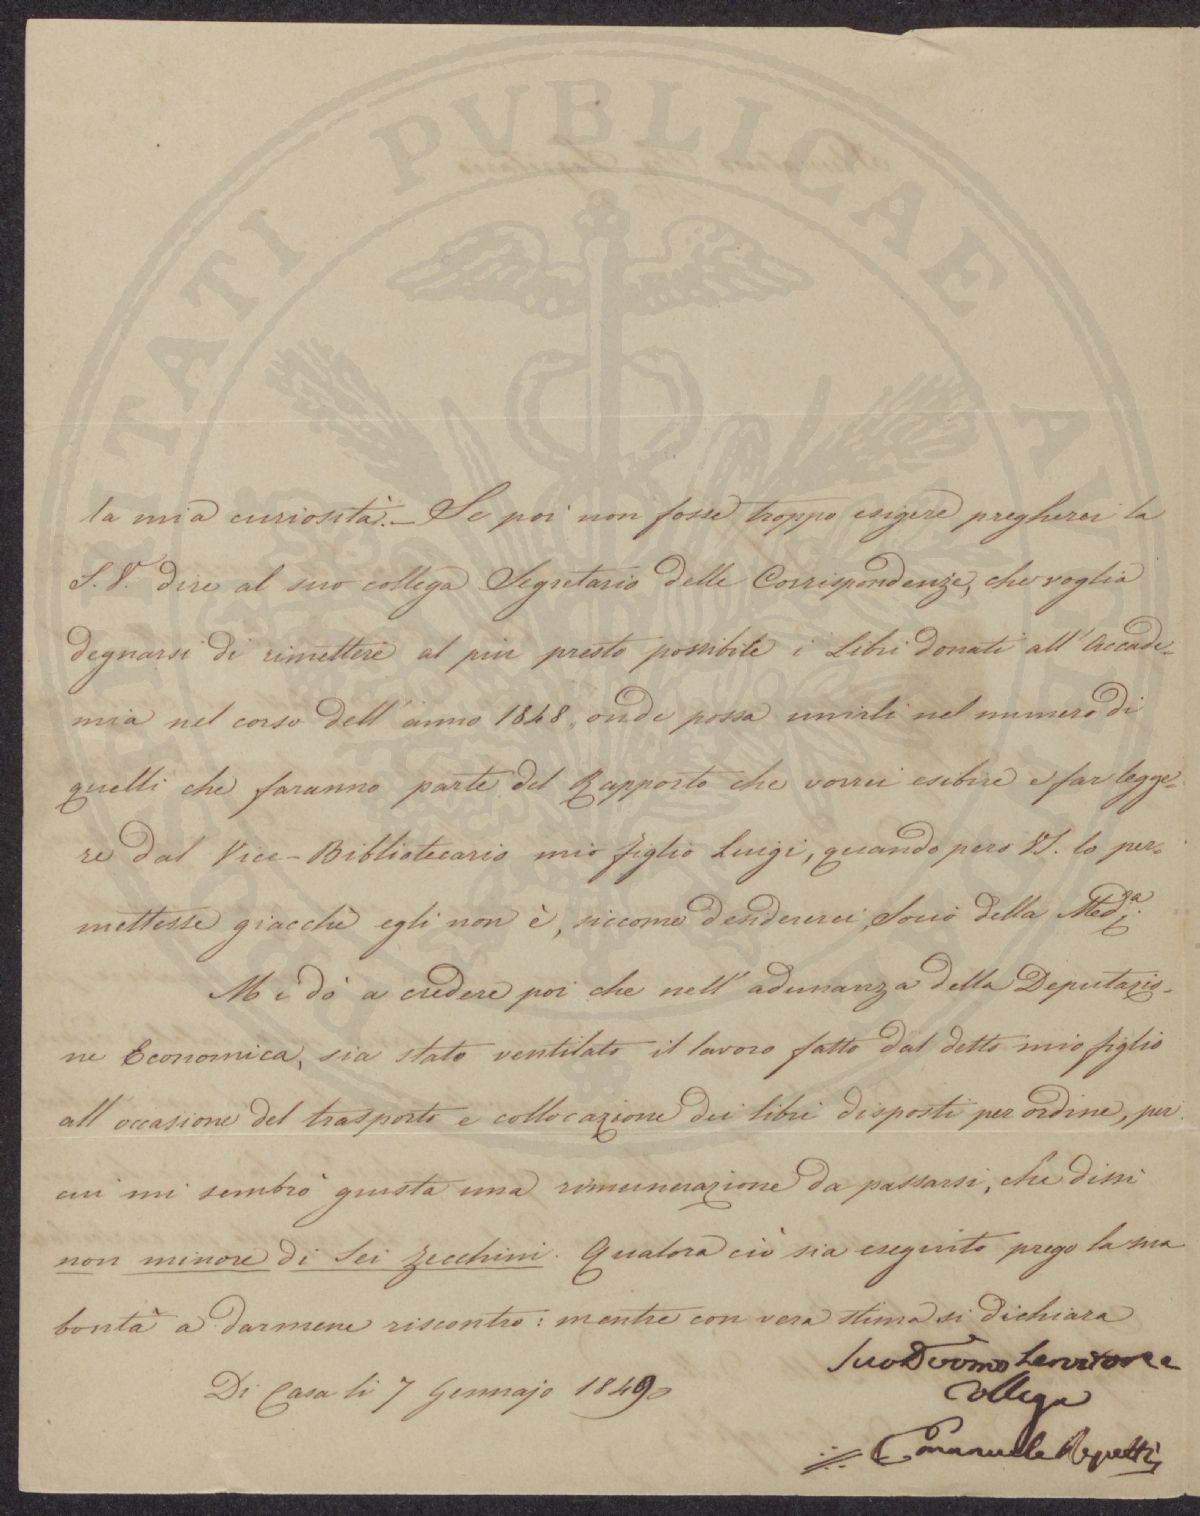 PVBLICAE
la mia curiosità. – Se poi non fosse troppo esigere pregherei la
S. V. dire al suo collega Segretario delle Corrispondenze, che voglia
degnarsi di rimettere al più presto possibile i Libri donati all'Accade-
mia nel corso dell'anno 1848, onde possa unirli nel numero di
quelli che faranno parte del Rapporto che vorrei esibire e far legge-
re dal Vice-Bibliotecario mio figlio Luigi, quando però VS. lo per-
mettesse giacchè egli non è, siccome desidererei, Socio della Med.ª
Mi dò a credere poi che nell'adunanza della Deputazio-
ne Economica, sia stato ventilato il lavoro fatto dal detto mio figlio
all'occasione del trasporto e collocazione dei libri disposti per ordine, per
cui mi sembrò giusta una rimunerazione da passarsi, che dissi
non minore di Sei Zecchini. Qualora ciò sia eseguito prego la sua
bontà a darmene riscontro: mentre con vera stima si dichiara
Suo Dev.mo Servitore e
Collega
Di Casa li 7 Gennajo 1849
Emanuele Repetti